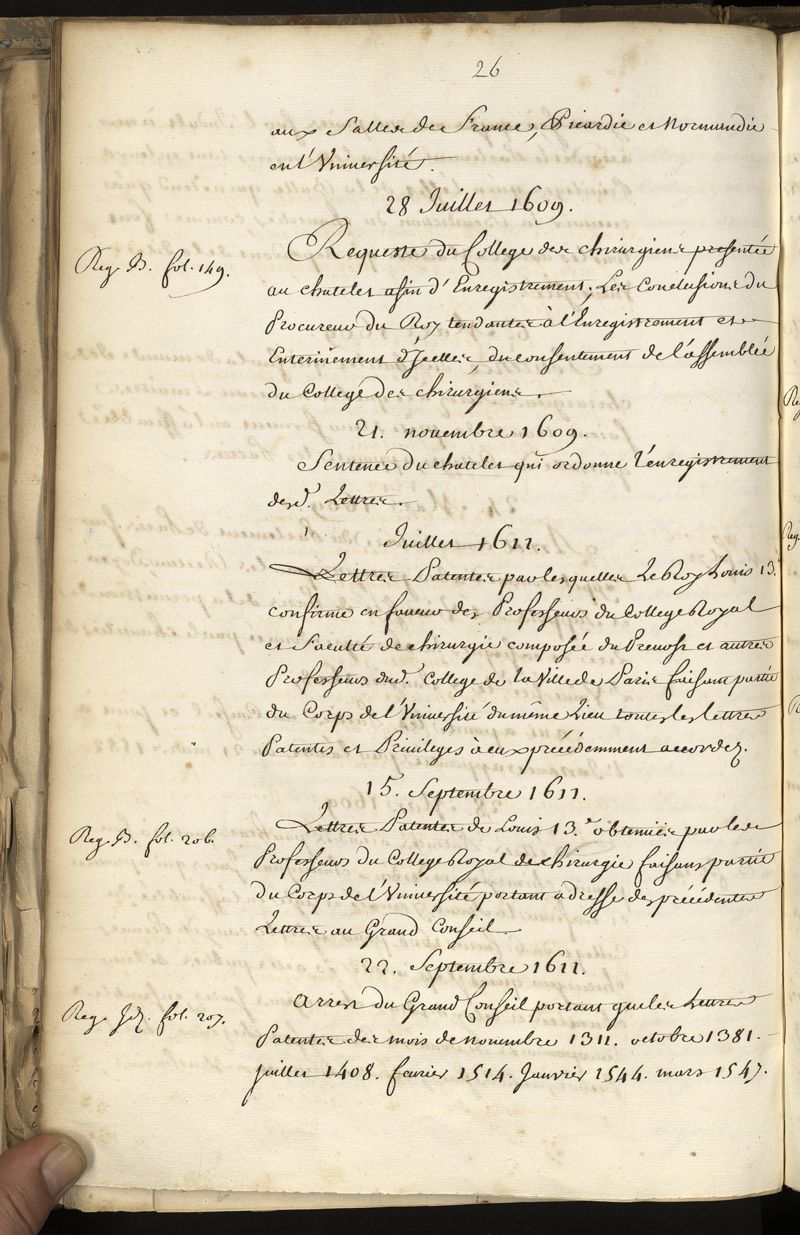 26
aux Salles de France, Picardie et Normandie
en l'Université.
28 Juillet 1609.
Reg. B. fol. 149.
Requeste du College des chirurgiens presentée
au chatelet afin d'Enregistrement, Les Conclusions du
Procureur du Roy tendantes à l'Enregistrement et
Enterinement d'Jcelles, du consentement de l'assemblée
du College des chirurgiens.
21. novembre 1609.
Sentence du chatelet qui ordonne l'enregistrement
desd. Lettres.
Juillet 1611.
Lettres Patentes par lesquelles Le Roy Louis 13.
confirme en faveur des Professeurs du College Royal
et Faculté de chirurgie composée du Prevost et autres
Professeurs dud. College de la Ville de Paris faisant partie
du Corps de l'Université du même Lieu toutes les lettres
Patentes et Privileges à eux précédemment accordez.
15. Septembre 1611.
Reg. B. fol. 206.
Lettres Patentes de Louis 13.e obtenües par les
Professeurs du College Royal de chirurgie faisans partie
du Corps de l'Université portant adresse des précédentes
Lettres au Grand Conseil.
22. Septembre 1611.
Reg. Id. fol. 207.
Arrest du Grand Conseil portant que les Lettres
Patentes des mois de novembre 1311. octobre 1381.
juillet 1408. fevrier 1514. Janvier 1544. mars 1547.